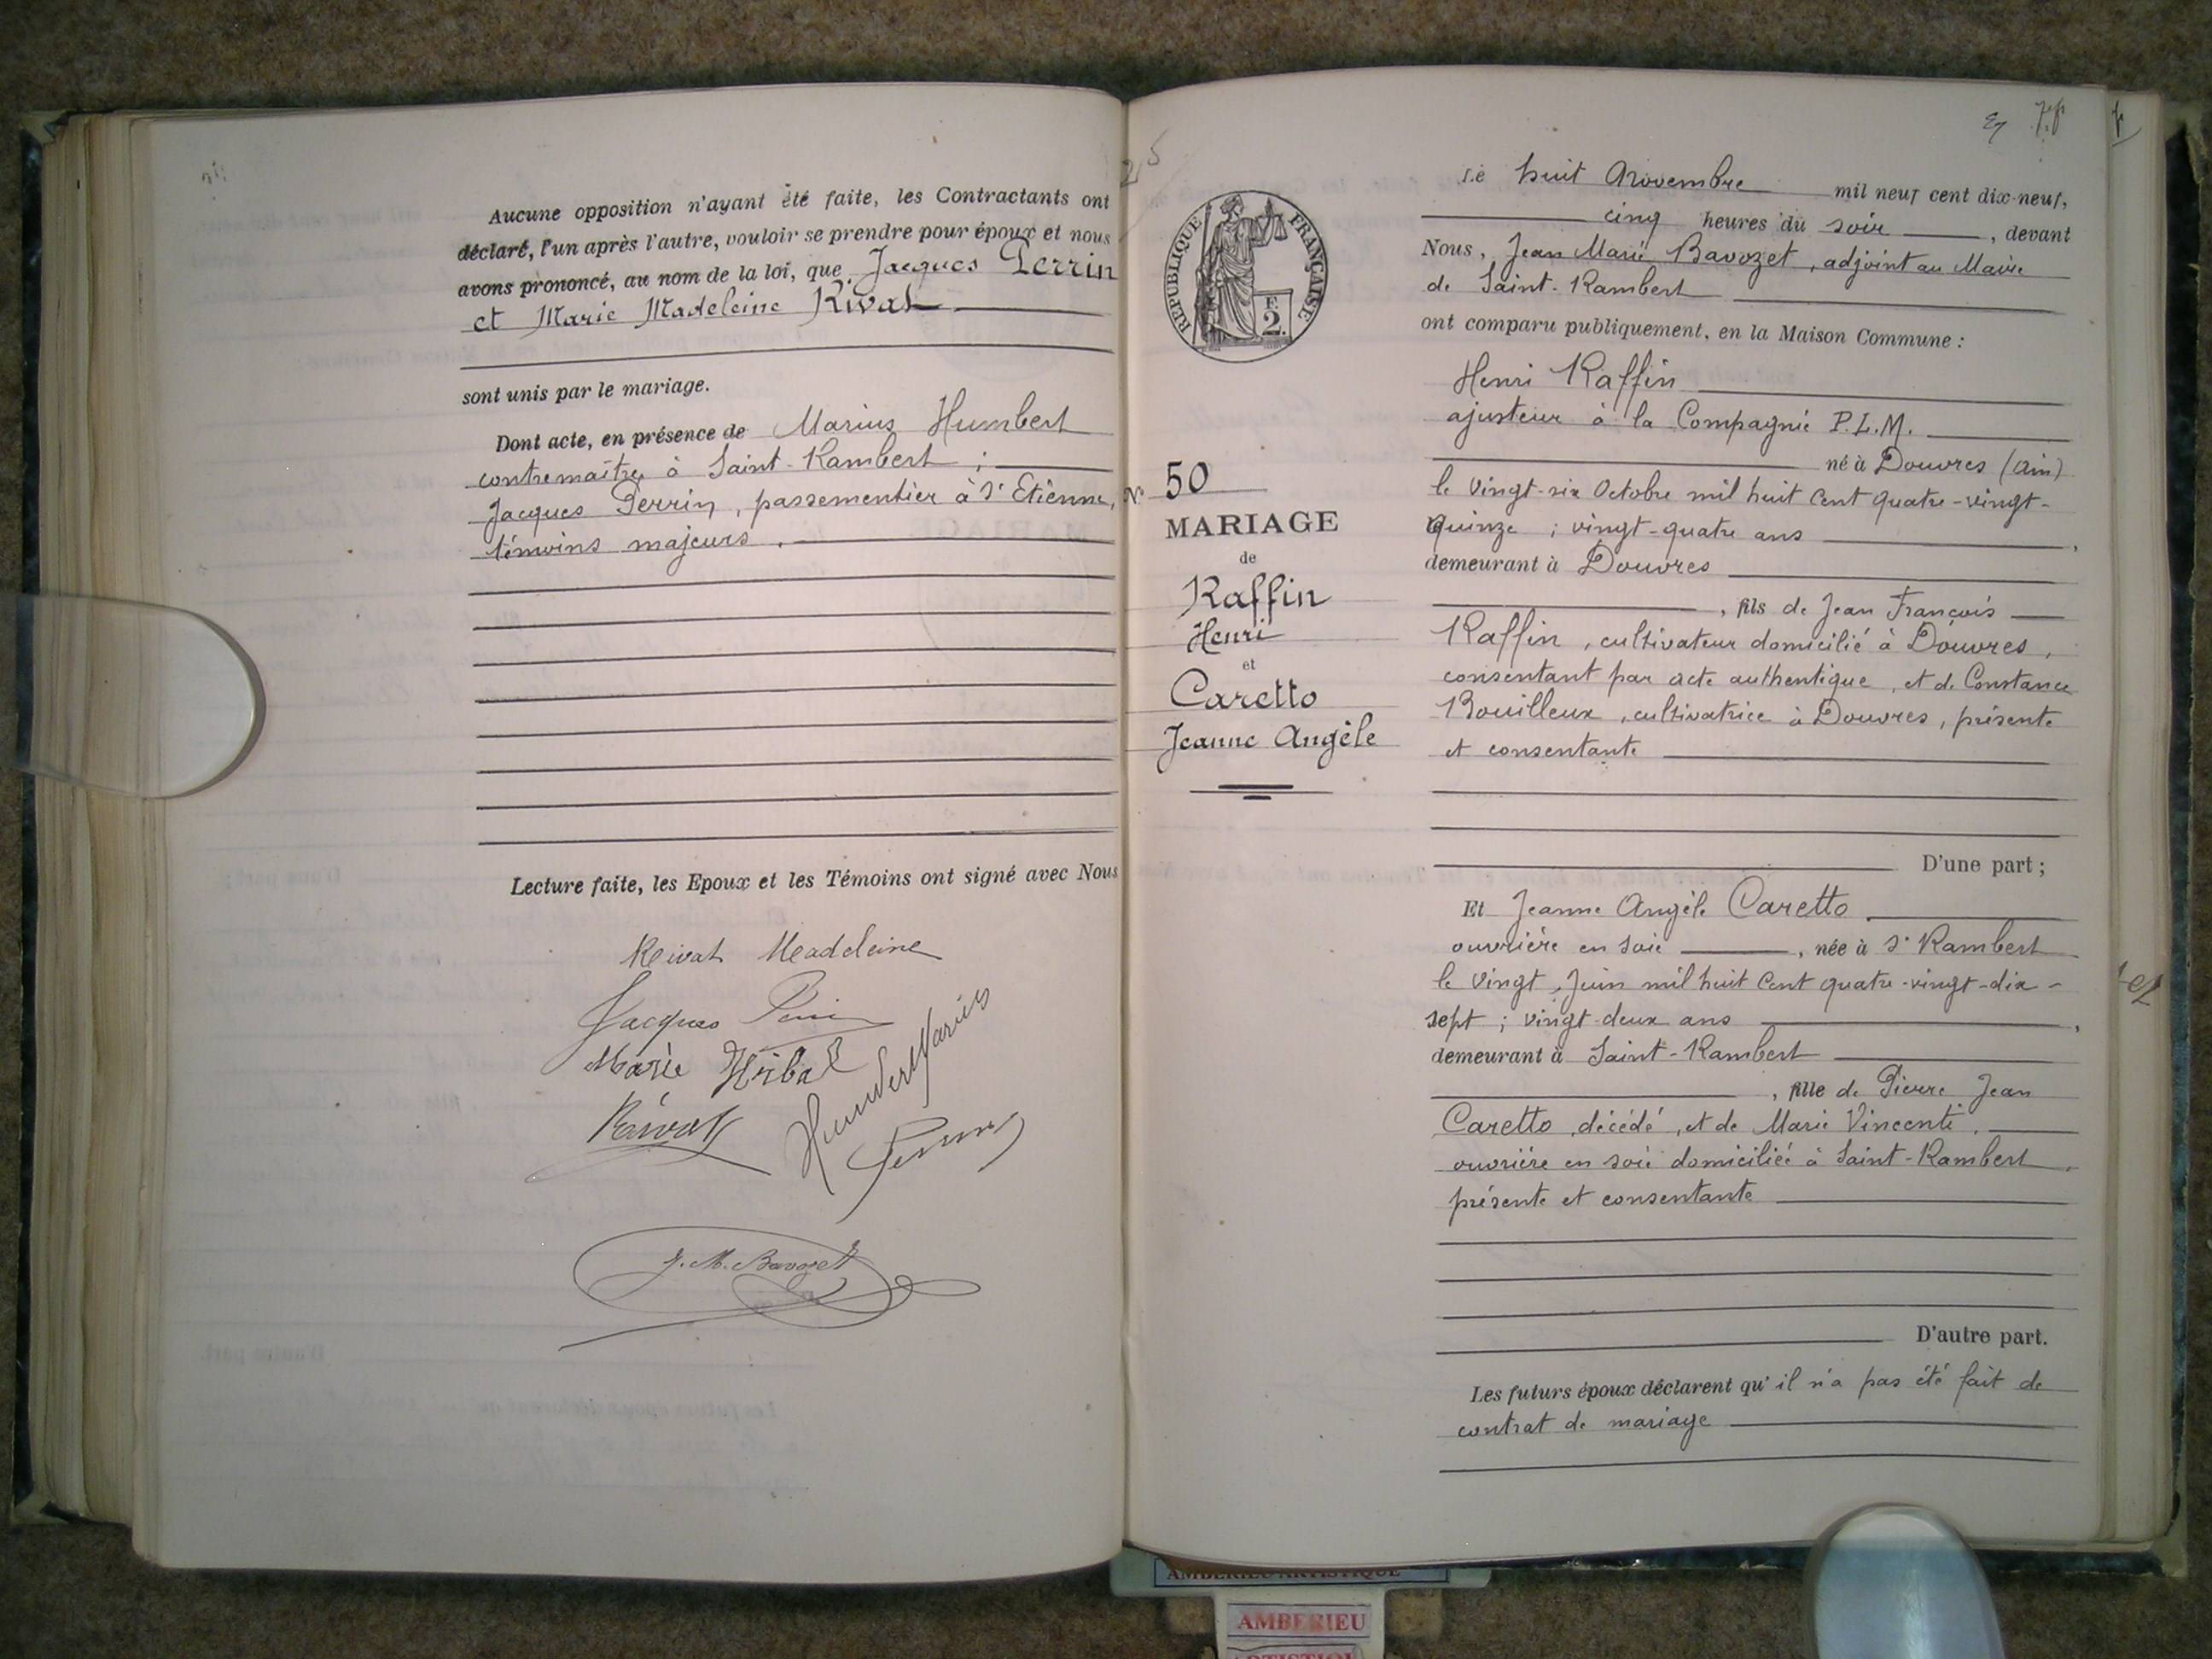 Aucune opposition n'ayant été faite, les Contractants ont
déclaré, l'un après l'autre, vouloir se prendre pour époux et nous
avons prononcé, au nom de la loi, que Jacques Perrin
et Marie Madeleine Rivat
sont unis par le mariage.
Dont acte, en présence de Marius Humbert
contremaître à Saint-Rambert ;
Jacques Perrin, passementier à St Etienne,
témoins majeurs.
Lecture faite, les Epoux et les Témoins ont signé avec Nous
Rivat Madeleine
Jacques Perrin
Marie
Humbert Marius
Rivat
Perrin
J. M. Bavozet
RÉPUBLIQUE FRANÇAISE
F.
2.
N° 50
MARIAGE
de
Raffin
Henri
et
Caretto
Jeanne Angèle
Le huit Novembre mil neuf cent dix-neuf,
cinq heures du soir, devant
Nous, Jean Marie Bavozet, adjoint au Maire
de Saint-Rambert
ont comparu publiquement, en la Maison Commune :
Henri Raffin
ajusteur à la Compagnie P.L.M.
né à Douvres (Ain)
le vingt-six Octobre mil huit cent quatre-vingt-
quinze ; vingt-quatre ans,
demeurant à Douvres
, fils de Jean François
Raffin, cultivateur domicilié à Douvres,
consentant par acte authentique, et de Constance
Bouilleux, cultivatrice à Douvres, présente
et consentante
D'une part ;
Et Jeanne Angèle Caretto
ouvrière en soie, née à St Rambert
le vingt Juin mil huit cent quatre-vingt-dix-
sept ; vingt-deux ans,
demeurant à Saint-Rambert
, fille de Pierre Jean
Caretto, décédé, et de Marie Vincenti,
ouvrière en soie domiciliée à Saint-Rambert,
présente et consentante
D'autre part.
Les futurs époux déclarent qu'il n'a pas été fait de
contrat de mariage
AMBERIEU ARTISTIQUE
AMBERIEU